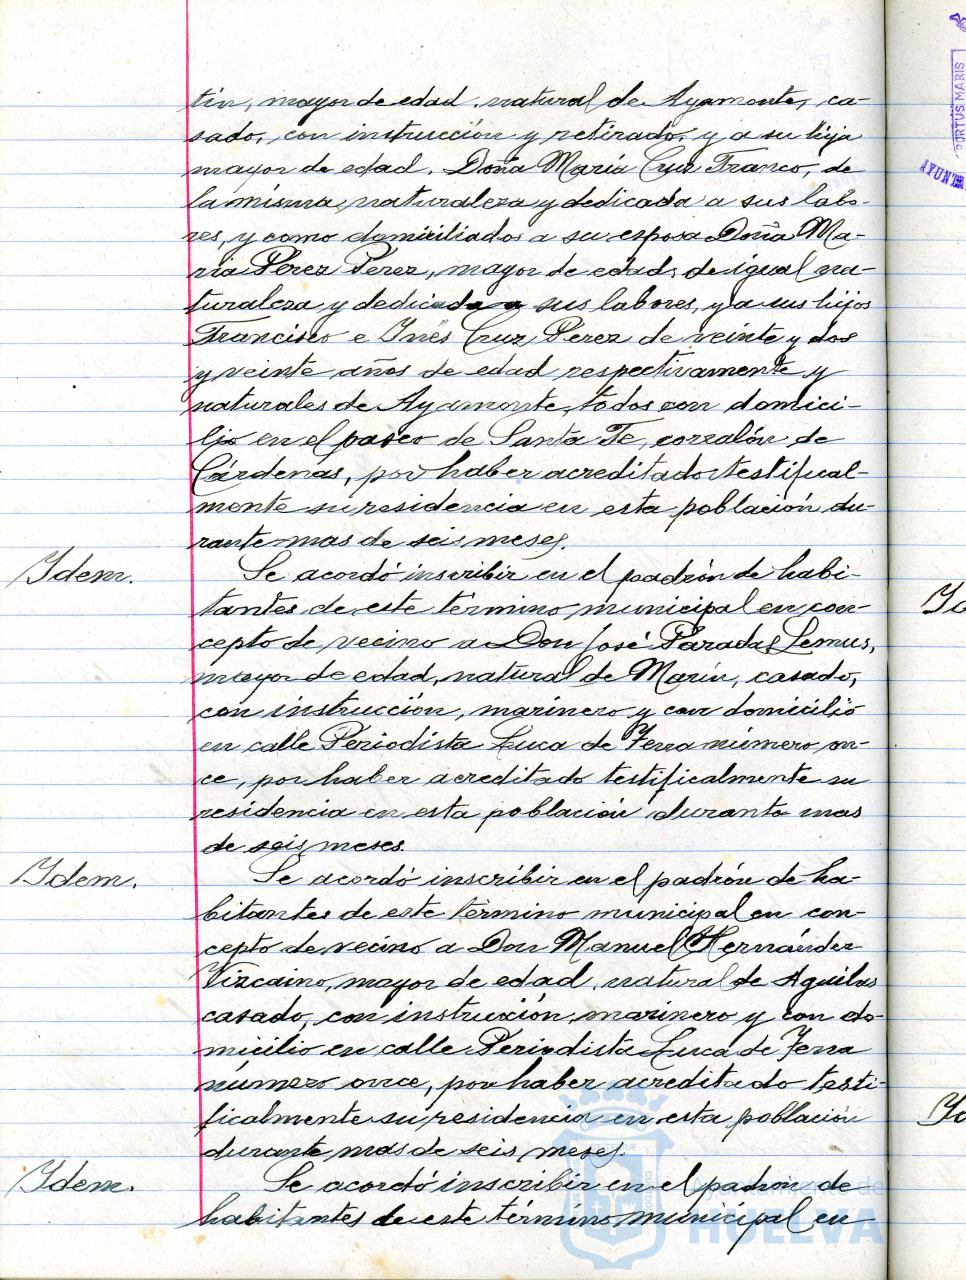 tin, mayor de edad, natural de Ayamonte, ca-
sado, con instrucción y retirado, y a su hija
mayor de edad, Doña María Cruz Franco, de
la misma naturaleza y dedicada a sus labo-
res, y como domiciliados a su esposa Doña Ma-
ria Perez Perez, mayor de edad, de igual na-
turaleza y dedicada a sus labores, y a sus hijos
Francisco e Inés Cruz Perez de veinte y dos
y veinte años de edad respectivamente y
naturales de Ayamonte, todos con domici-
lio en el paseo de Santa Fe, corralón de
Cárdenas, por haber acreditado testifical-
mente su residencia en esta población du-
rante mas de seis meses.
Idem.
Se acordó inscribir en el padrón de habi-
tantes de este término municipal en con-
cepto de vecino a Don José Paradas Lemus,
mayor de edad, natural de Marin, casado,
con instrucción, marinero y con domicilio
en calle Periodista Luca de Tena número on-
ce, por haber acreditado testificalmente su
residencia en esta población durante mas
de seis meses.
Idem.
Se acordó inscribir en el padrón de ha-
bitantes de este término municipal en con-
cepto de vecino a Don Manuel Hernández
Vizcaino, mayor de edad, natural de Aguilas
casado, con instrucción, marinero y con do-
micilio en calle Periodista Luca de Tena
número once, por haber acreditado testi-
ficalmente su residencia en esta población
durante mas de seis meses.
Idem.
Se acordó inscribir en el padrón de
habitantes de este término municipal en
HUELVA
PORTUS MARIS